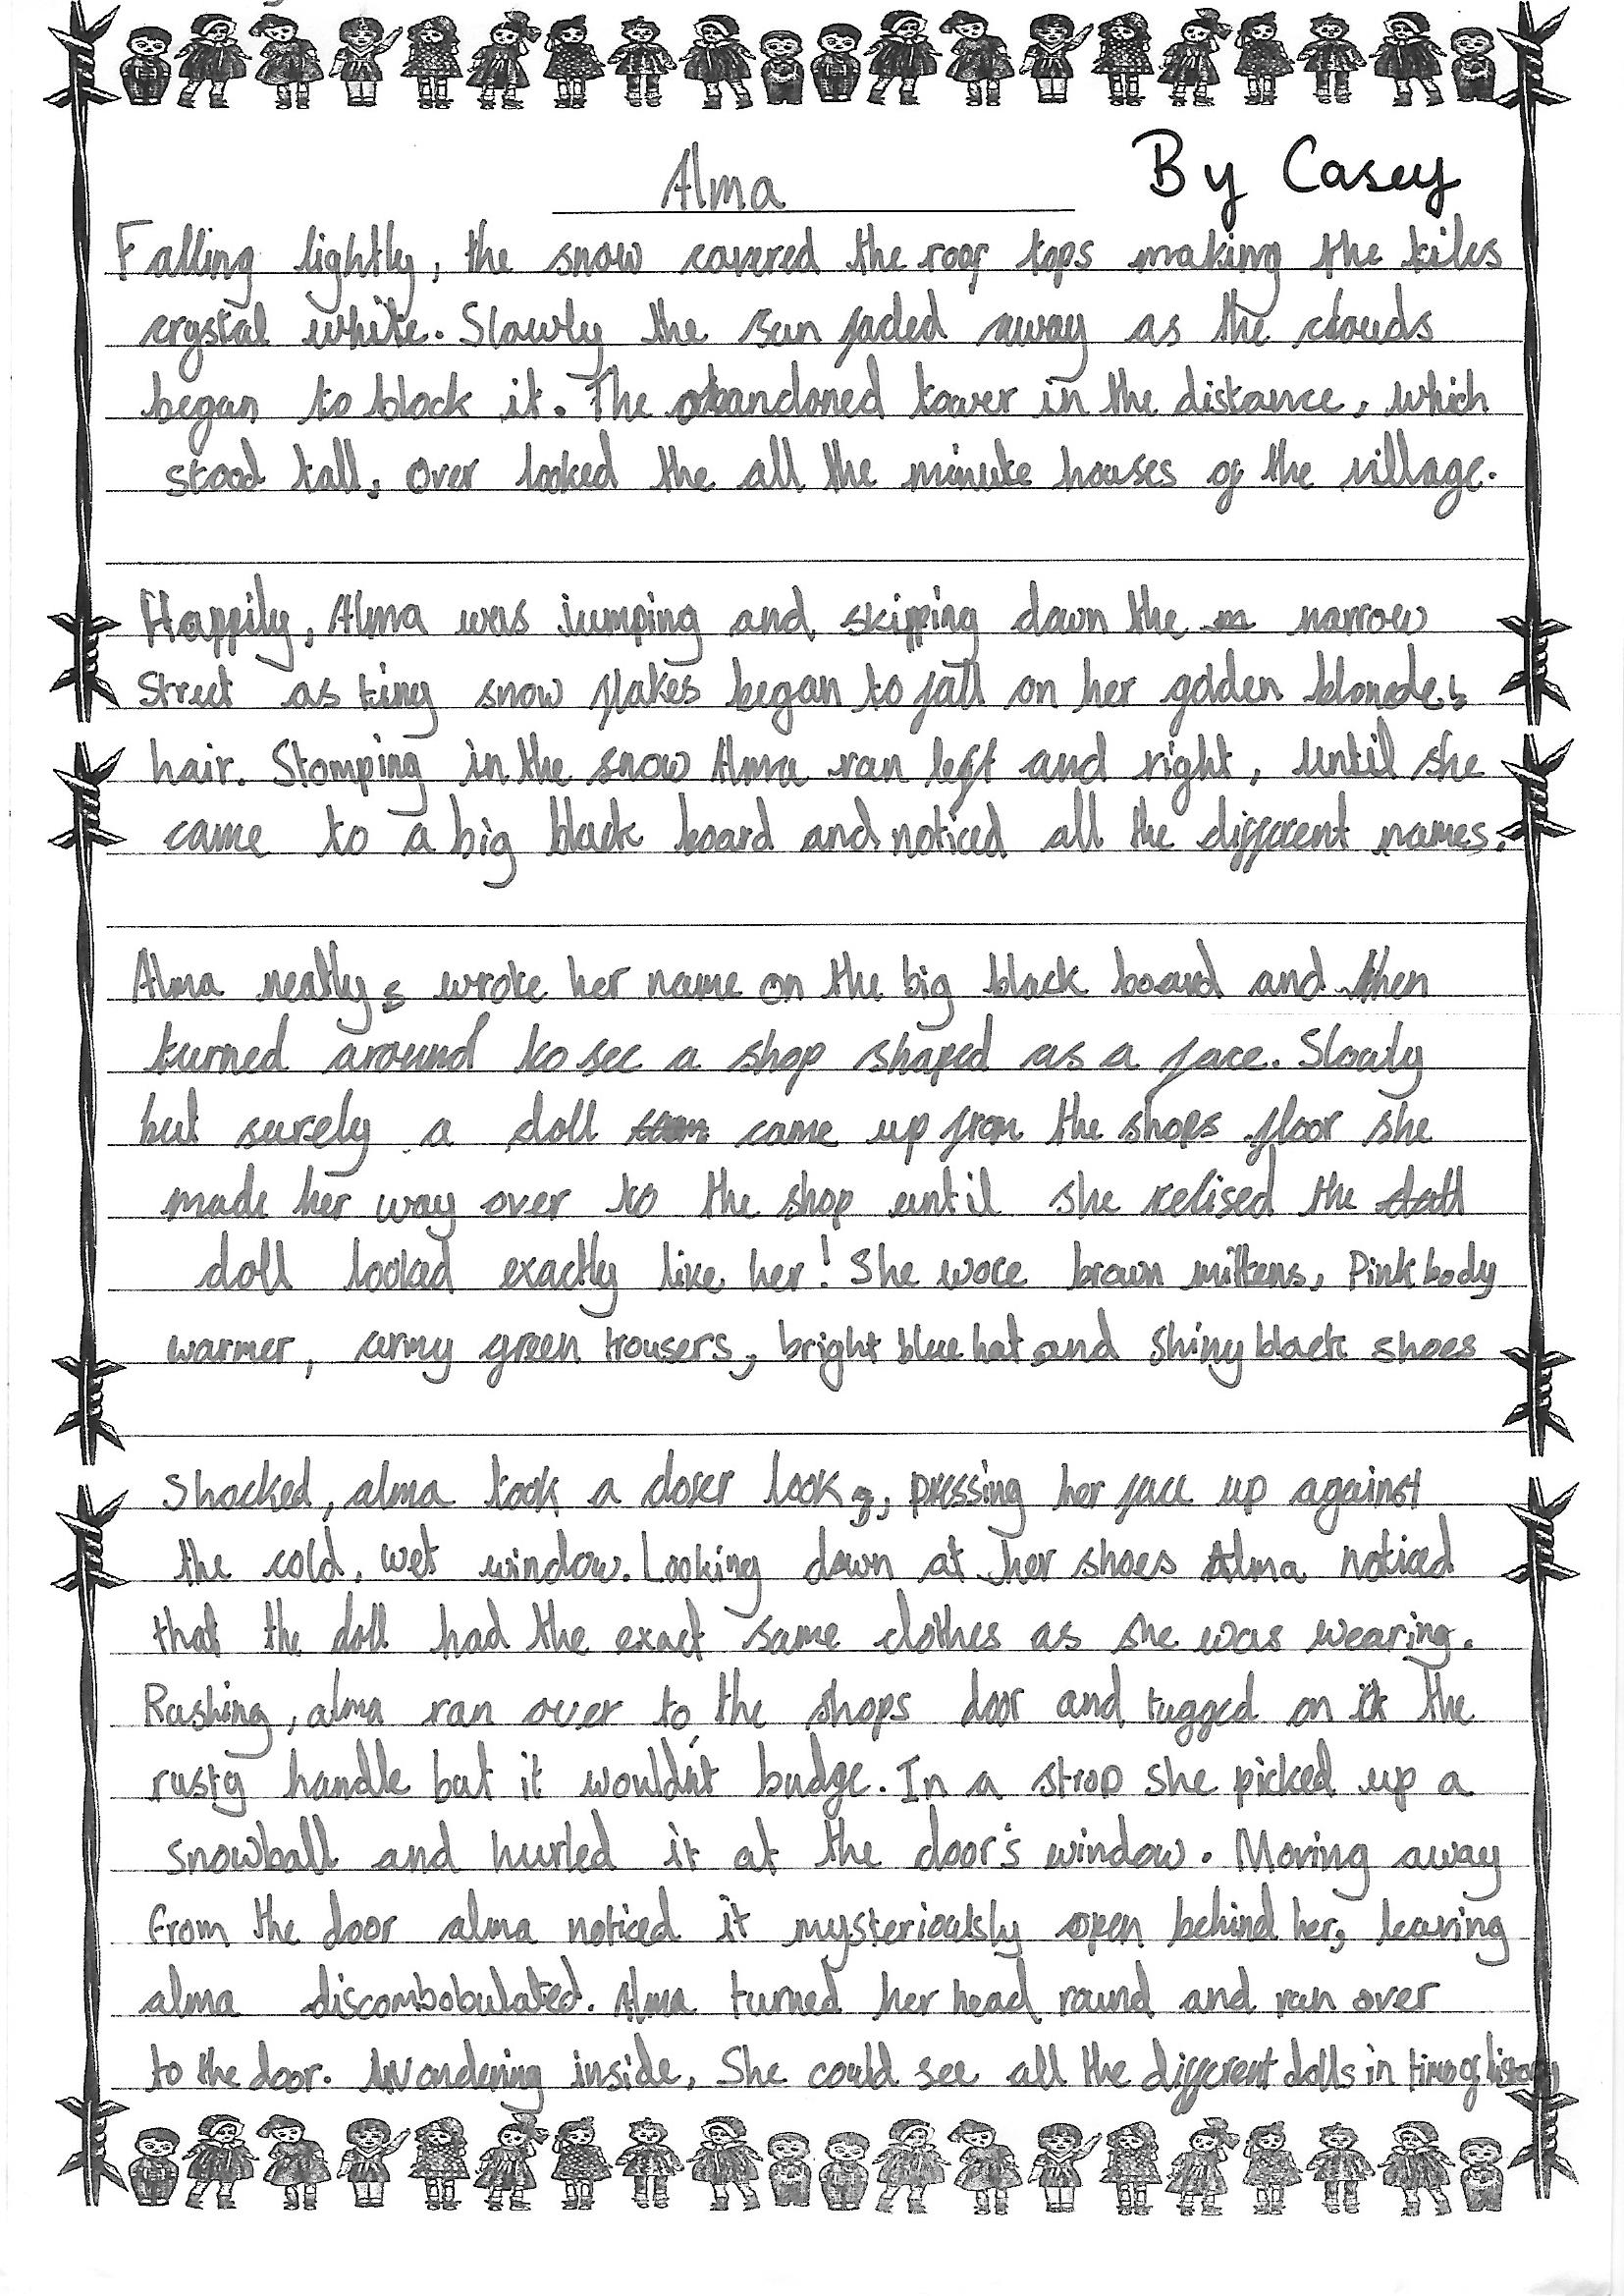 Alma
By Casey
Falling lightly, the snow covered the roof tops making the tiles
crystal white. Slowly the sun faded away as the clouds
began to block it. The abandoned tower in the distance, which
stood tall, over looked the all the minute houses of the village.
Happily, Alma was jumping and skipping down the narrow
street as tiny snow flakes began to fall on her golden blonde
hair. Stomping in the snow Alma ran left and right, until she
came to a big black board and noticed all the different names.
Alma neatly wrote her name on the big black board and then
turned around to see a shop shaped as a face. Slowly
but surely a doll came up from the shops floor she
made her way over to the shop until she relised the
doll looked exactly like her! She wore brown mittens, Pink body
warmer, army green trousers, bright blue hat and shiny black shoes
Shocked, alma took a closer look, pressing her face up against
the cold, wet window. Looking down at her shoes Alma noticed
that the doll had the exact same clothes as she was wearing.
Rushing, alma ran over to the shops door and tugged on the
rusty handle but it wouldn't budge. In a strop she picked up a
snowball and hurled it at the door's window. Moving away
from the door alma noticed it mysteriously open behind her, leaving
alma discombobulated. Alma turned her head round and ran over
to the door. Wondering inside, She could see all the different dolls in time of history